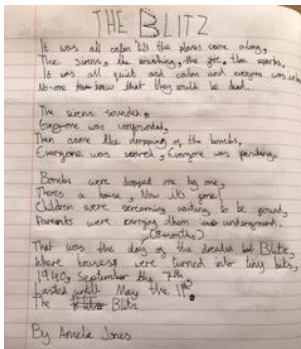 THE BLITZ
It was all calm 'till the planes came along,
The sirens, the crashing, the fire, the sparks,
It was all quiet and calm and everyone was
No-one knew that they would be dead.
The sirens sounded,
Everyone was
Then came the dropping of the bombs,
Everyone was scared, Everyone was
Bombs were dropped one by one,
There's a house, Now it's gone!
Children were screaming waiting to be found,
Parents were carrying them underground.
(8 months)
That was the day of the dreaded Blitz,
Where houses were turned into tiny bits,
1940, September the 7th
Lasted until May the 11th
The Blitz
By Amelie Jones